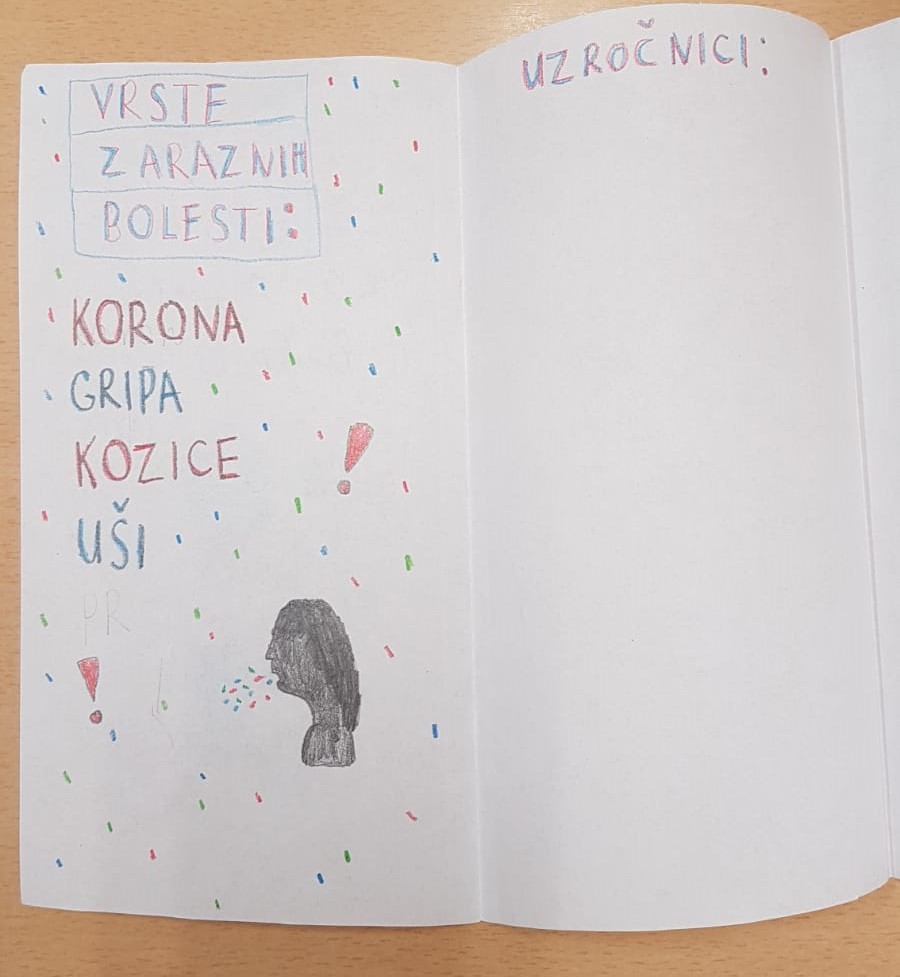 VRSTE
ZARAZNIH
BOLESTI:
KORONA
GRIPA
KOZICE
UŠI
PR
UZROČNICI: